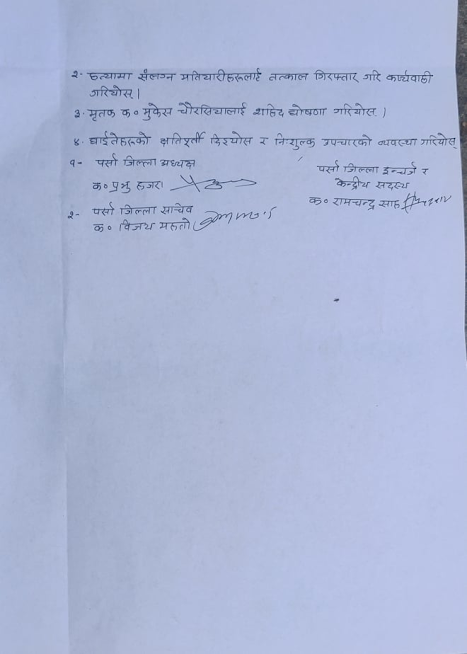 २. हत्यामा संलग्न मतियारीहरूलाई तत्काल गिरफ्तार गरि कार्यवाही
गरियोस् ।
३. मृतक क० मुकेस चौरसियालाई शहिद घोषणा गरियोस् ।
४. घाईतेहरूको क्षतिपूर्ती दिइयोस र निःशुल्क उपचारको व्यवस्था गरियोस्
१- पर्सा जिल्ला अध्यक्ष
क० प्रभु हजरा
पर्सा जिल्ला इन्चार्ज र
केन्द्रीय सदस्य
क० रामचन्द्र साह
२- पर्सा जिल्ला साचिव
क० विजय महतो